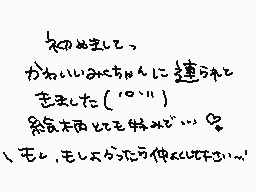 初めましてっ
かわいいみくちゃんに連られて
きました(˙꒳˙)
絵柄とても好みで…♡
もし、もしよかったら仲よくして下さい…!